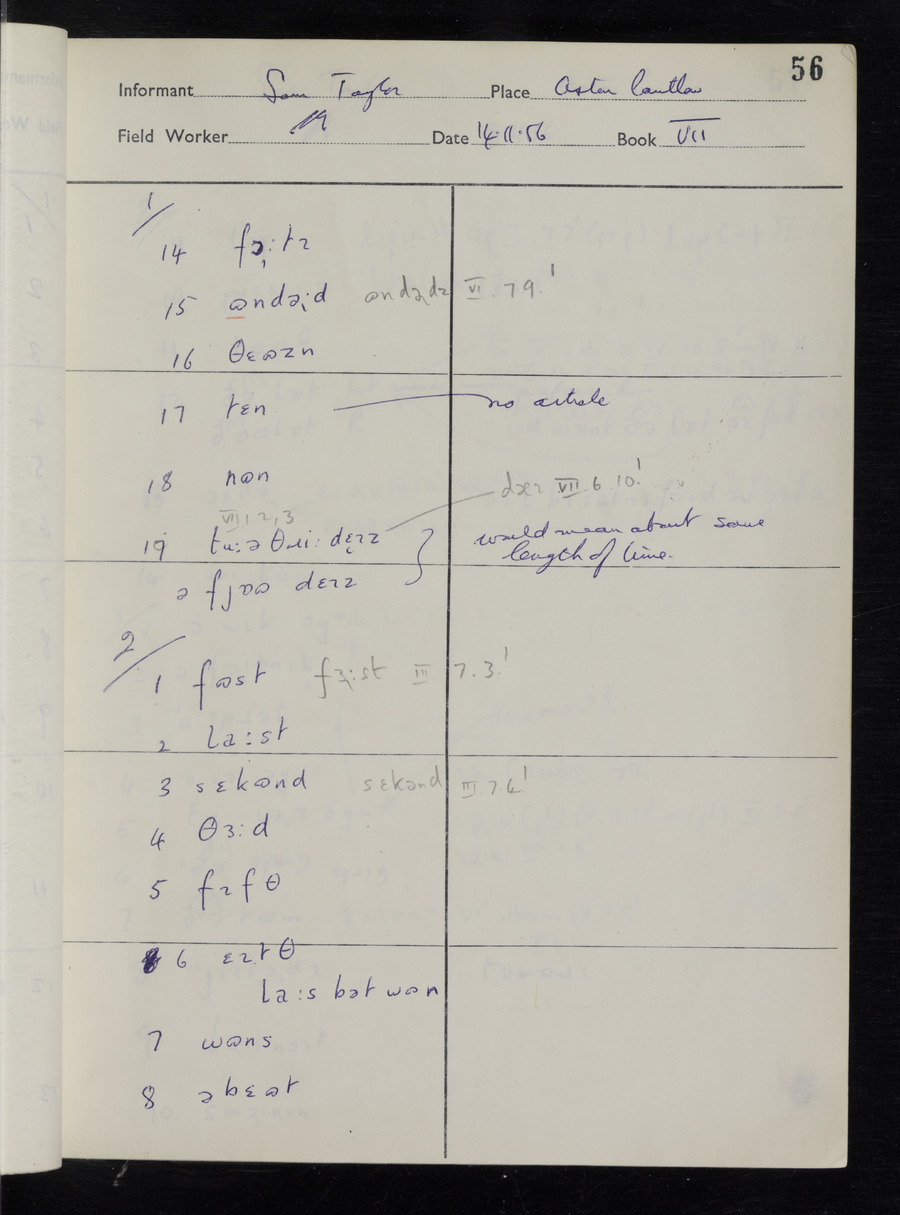 56
Informant Sam Taylor Place Aston Cantlow
Field Worker Date 14.11.56 Book VII
1/
14 fɔ̜:tɪ
15 ɷndə̜:d ɷndə̜dz VI.7.9.'
16 θɛɷzn
17 tɛn no article
18 nɷn
VII 1 2, 3 dɛɪ VII.6.10.'
19 tu: ə θɹi: dɛɪz would mean about same
length of time.
ə fjɒɷ dɛɪz
2/
1 fɷst fɜ̜:st III 7.3.'
2 la:st
3 sɛkɷnd sɛkənd III.7.4'
4 θɜ:d
5 fɪfθ
6 ɛɪtθ
la:s bət wɷn
7 wɷns
8 əbɛɷt